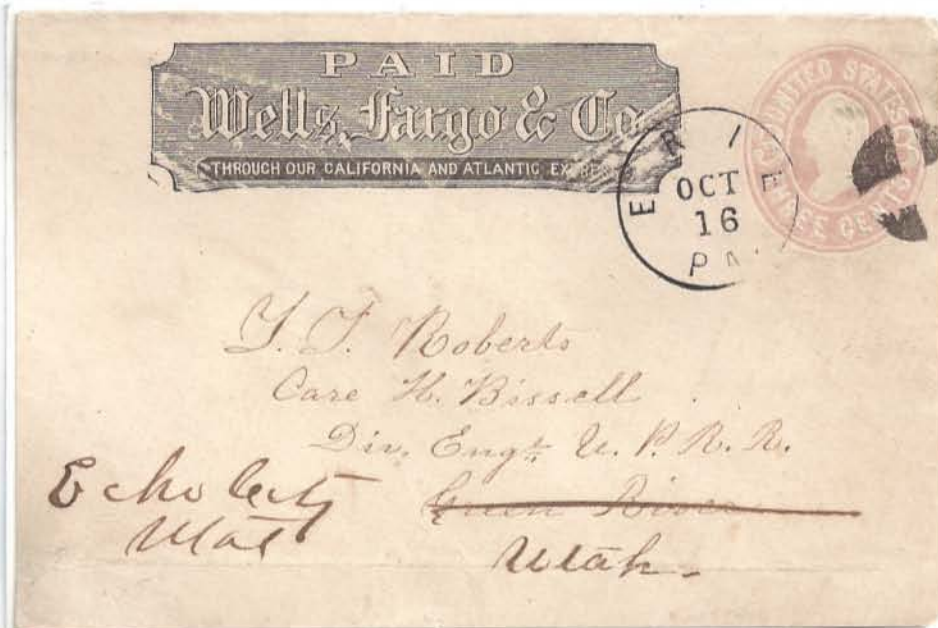 PAID
Wells, Fargo & Co.
THROUGH OUR CALIFORNIA AND ATLANTIC EXPRESS
UNITED STATES
THREE CENTS
ERIE
OCT
16
PA.
Roberts
Care H. Bissell
Div. Engr. U. P. R. R.
Green River
Echo City
Utah
Utah